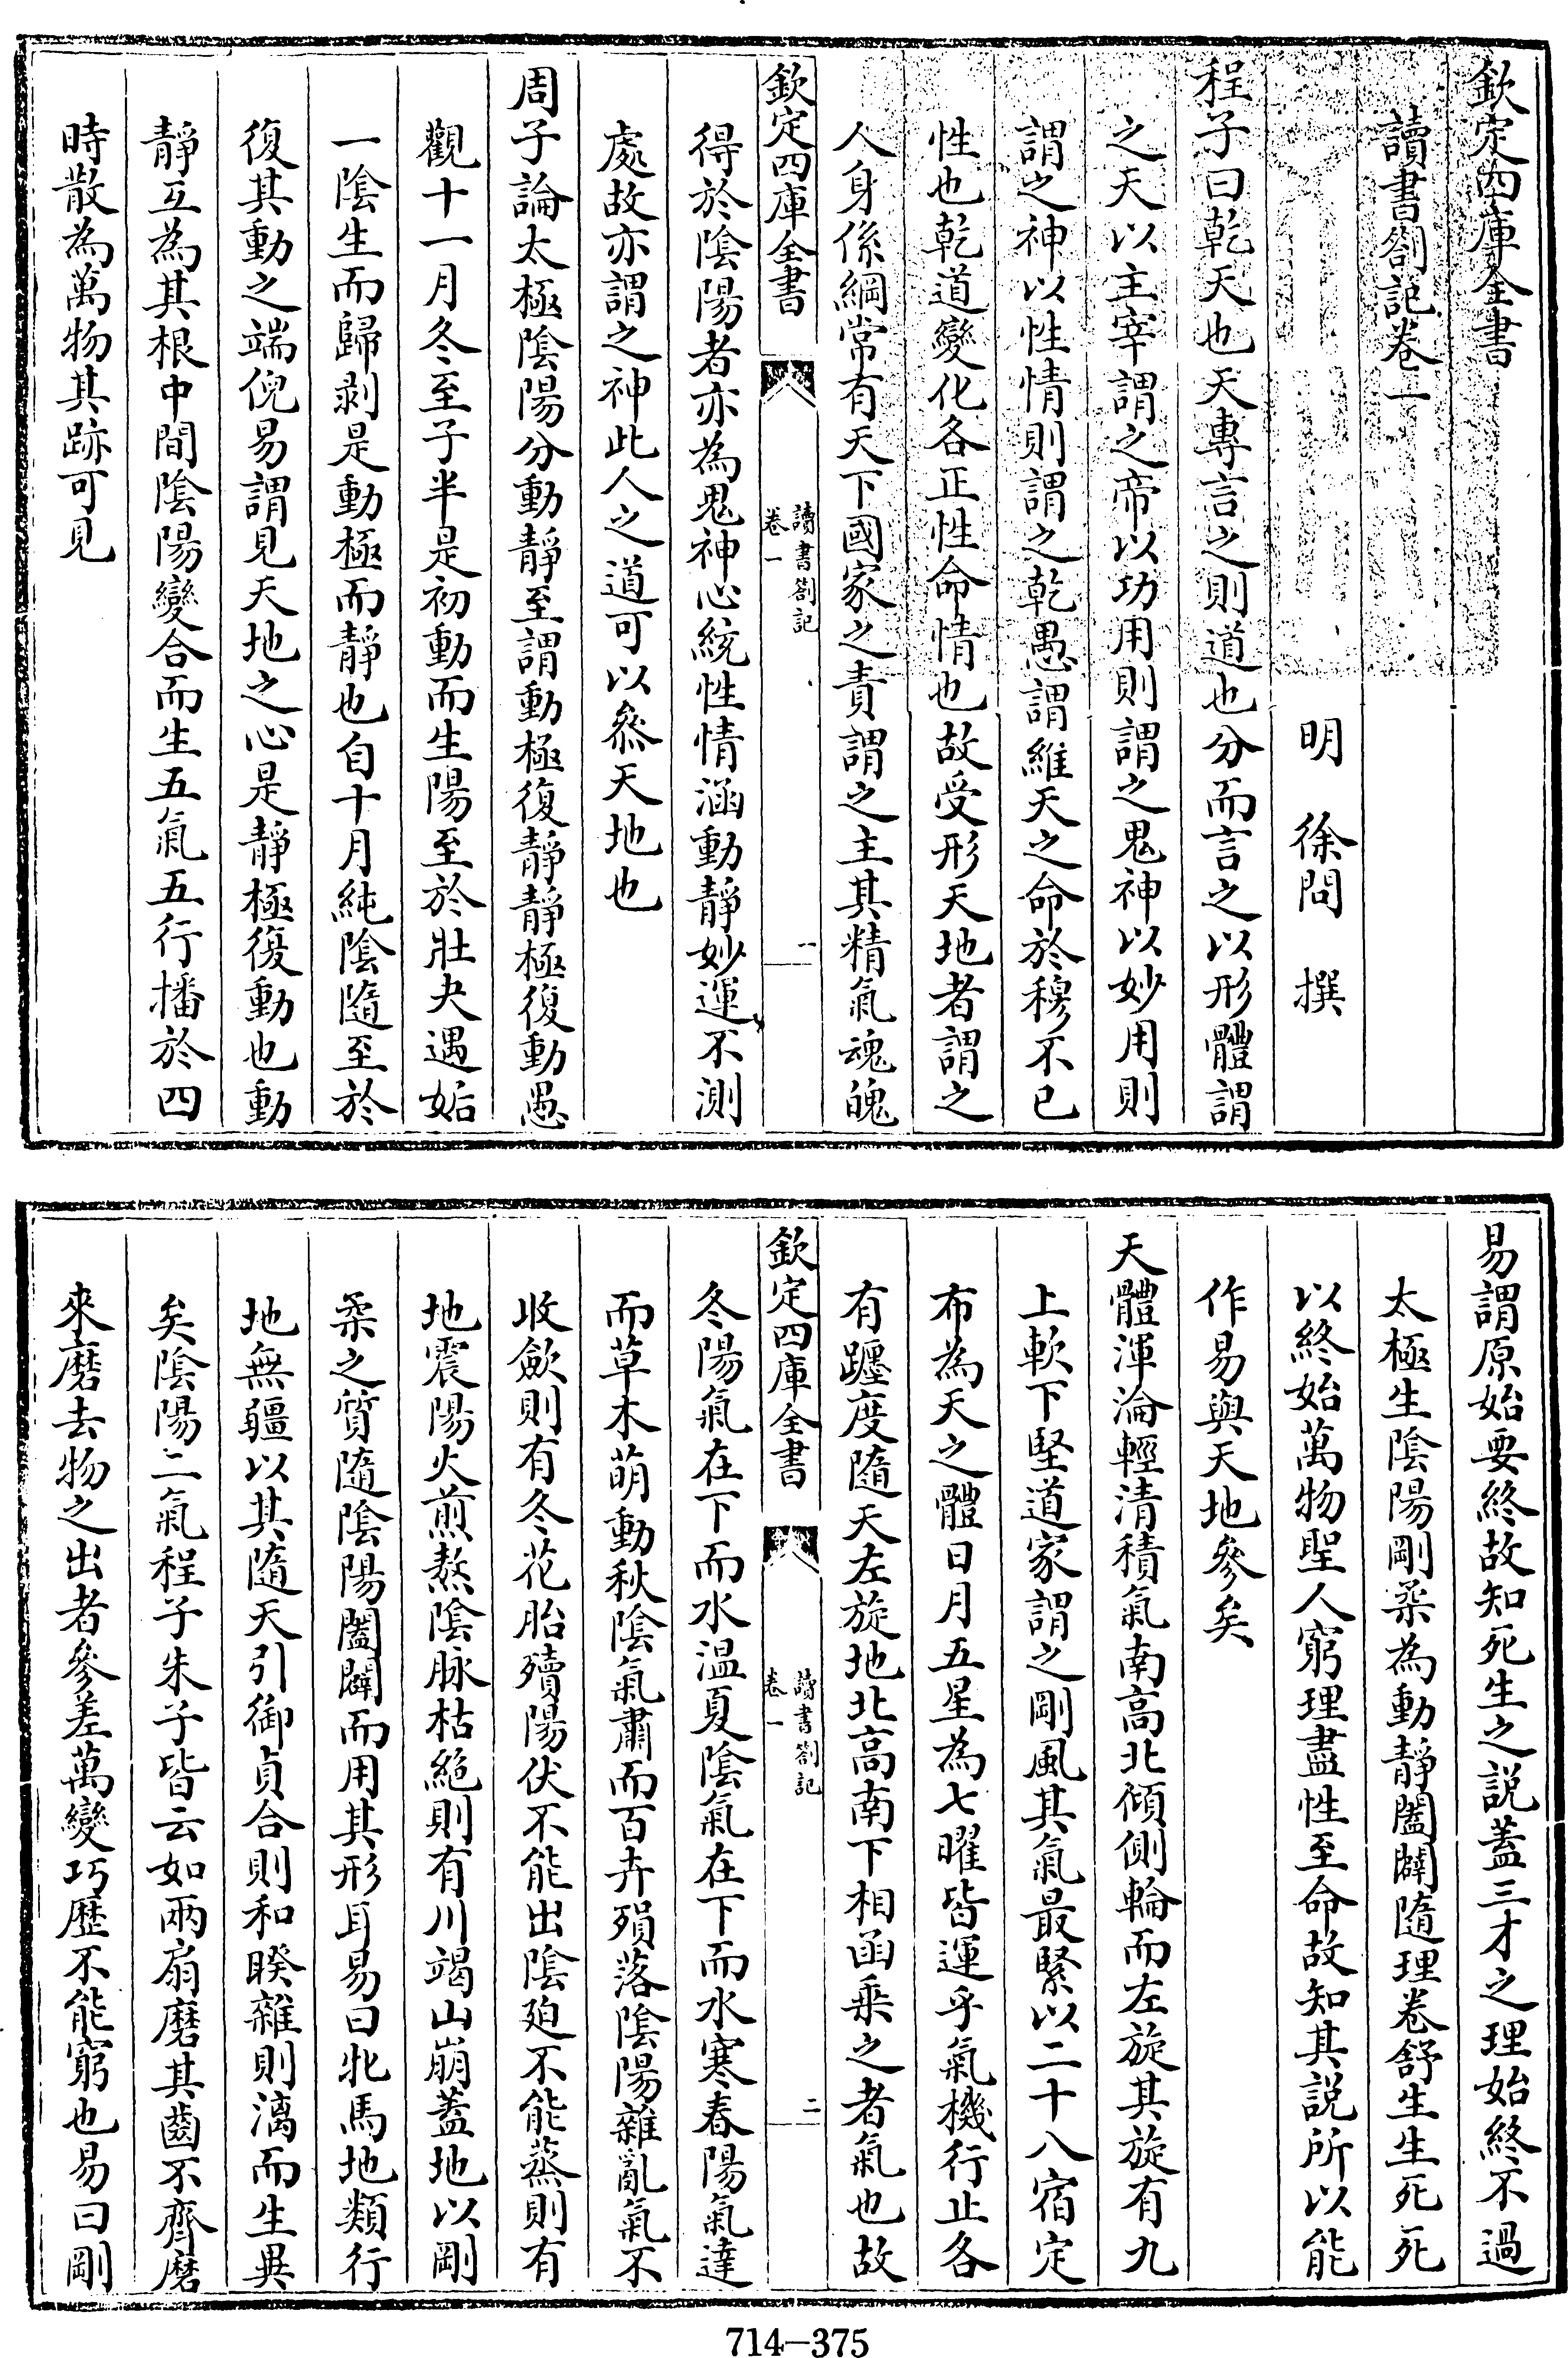 欽定四庫全書
讀書劄記卷一
明　徐問　撰
程子曰乾天也天專言之則道也分而言之以形體謂
之天以主宰謂之帝以功用則謂之鬼神以妙用則
謂之神以性情則謂之乾愚謂維天之命於穆不已
性也乾道變化各正性命情也故受形天地者謂之
人身係綱常有天下國家之責謂之主其精氣魂魄
欽定四庫全書
讀書劄記
卷一
一
得於陰陽者亦為鬼神心統性情涵動靜妙運不測
處故亦謂之神此人之道可以叅天地也
周子論太極陰陽分動靜至謂動極復靜靜極復動愚
觀十一月冬至子半是初動而生陽至於壯夬遇姤
一陰生而歸剥是動極而靜也自十月純陰隨至於
復其動之端倪易謂見天地之心是靜極復動也動
靜互為其根中間陰陽變合而生五氣五行播於四
時散為萬物其跡可見
易謂原始要終故知死生之說蓋三才之理始終不過
太極生陰陽剛柔為動靜闔闢隨理卷舒生生死死
以終始萬物聖人窮理盡性至命故知其説所以能
作易與天地參矣
天體渾淪輕清積氣南高北傾側輪而左旋其旋有九
上軟下堅道家謂之剛風其氣最緊以二十八宿定
布為天之體日月五星為七曜皆運乎氣機行止各
有躔度隨天左旋地北高南下相函乗之者氣也故
欽定四庫全書
讀書劄記
卷一
二
冬陽氣在下而水温夏陰氣在下而水寒春陽氣達
而草木萌動秋陰氣肅而百卉殞落陰陽雜亂氣不
收歛則有冬花胎殰陽伏不能出陰廹不能蒸則有
地震陽火煎熬陰脉枯絶則有川竭山崩蓋地以剛
柔之質隨陰陽闔闢而用其形耳易曰牝馬地類行
地無疆以其隨天引御貞合則和暌雜則漓而生異
矣陰陽二氣程子朱子皆云如兩扇磨其齒不齊磨
來磨去物之出者參差萬變巧歷不能窮也易曰剛
714-375